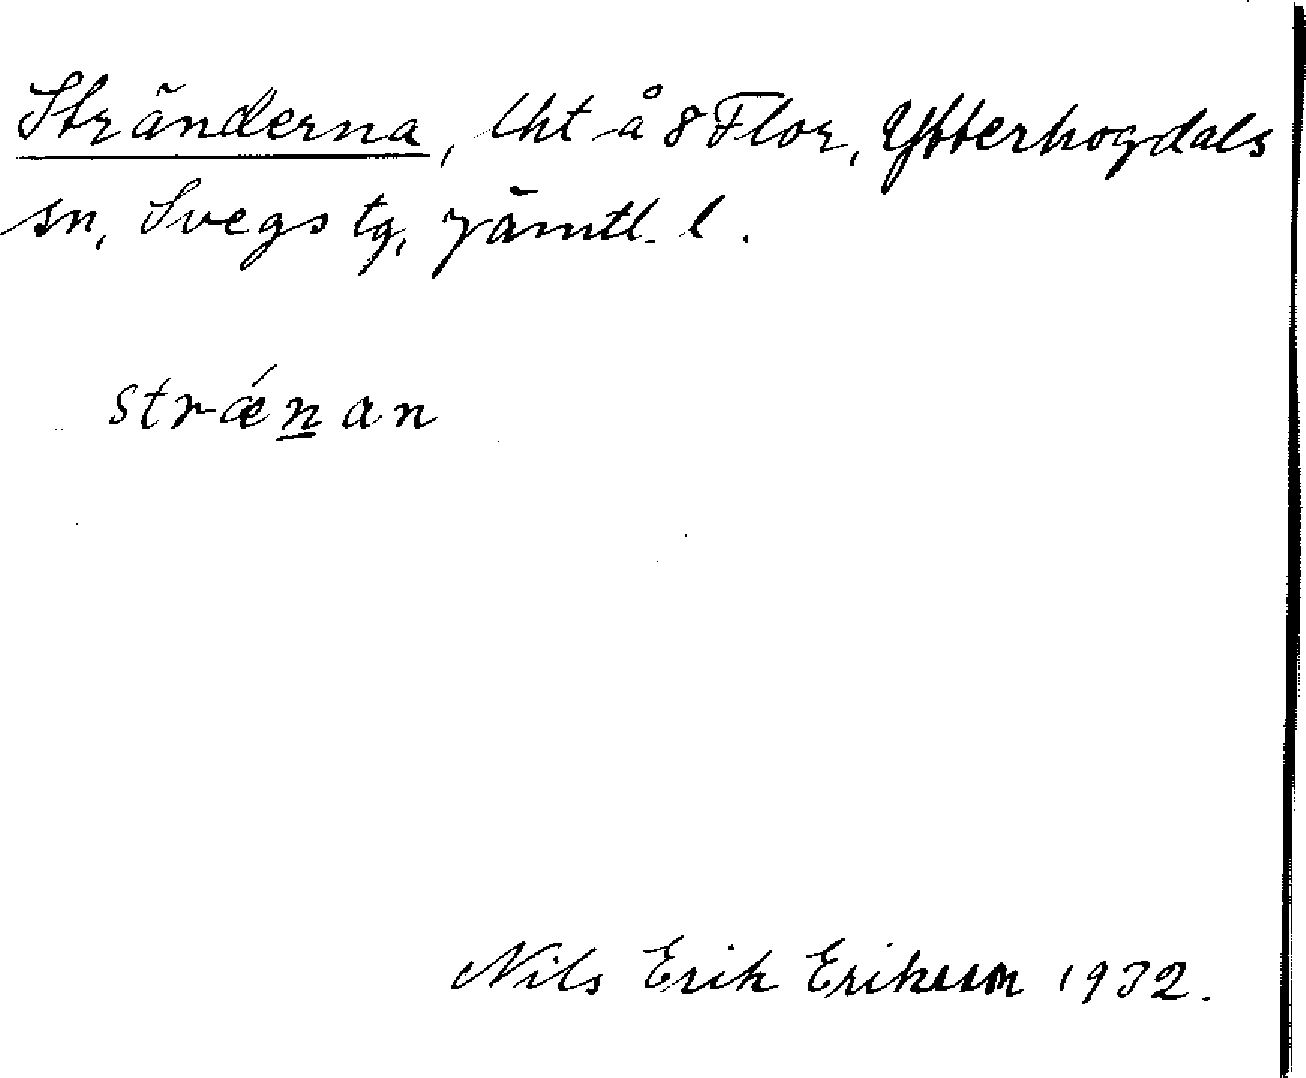 Stränderna, lht å 8 Flor, Ytterhogdals
sn, Svegs tg, Jämtl. l.
strǽn̲an
Nils Erik Eriksson 1932.